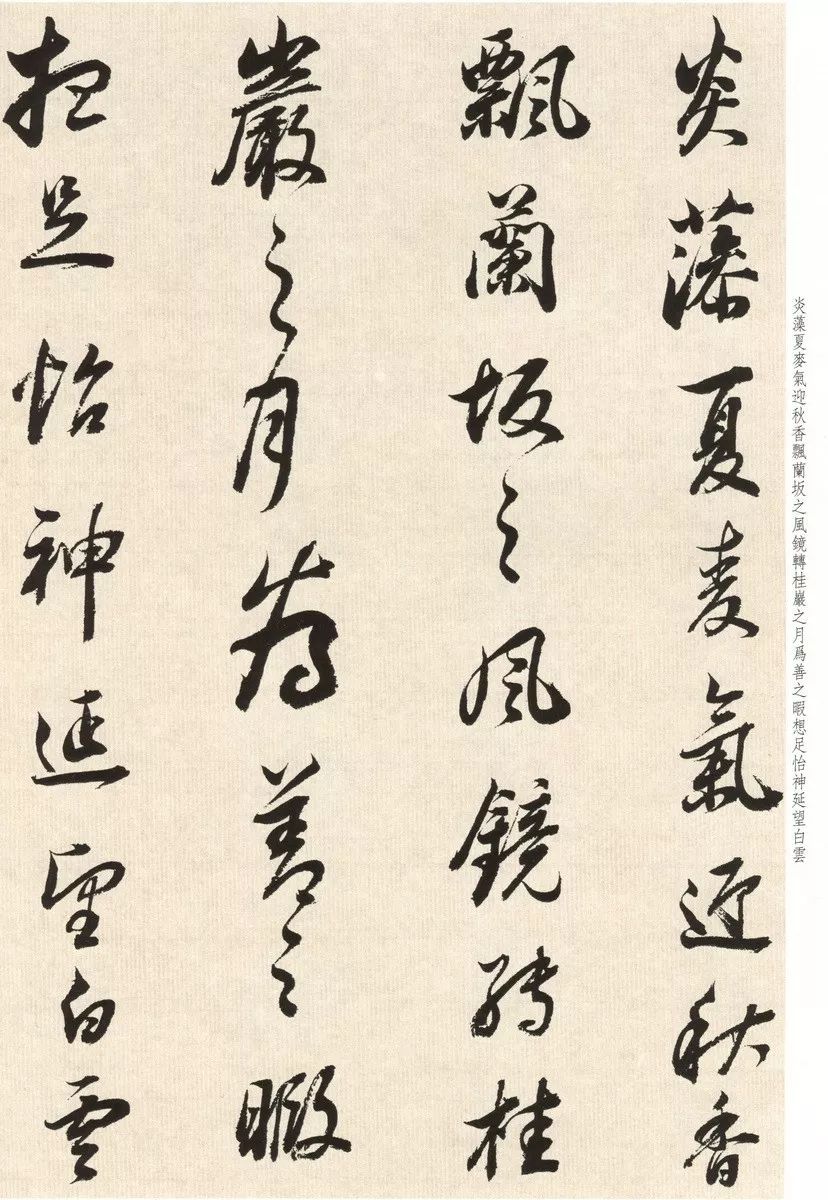 炎藻夏麥氣迎秋香
飄蘭坂之風鏡轉桂
巖之月為善之暇
想足怡神延望白雲
炎藻夏麥氣迎秋香飄蘭坂之風鏡轉桂巖之月爲善之暇想足怡神延望白雲